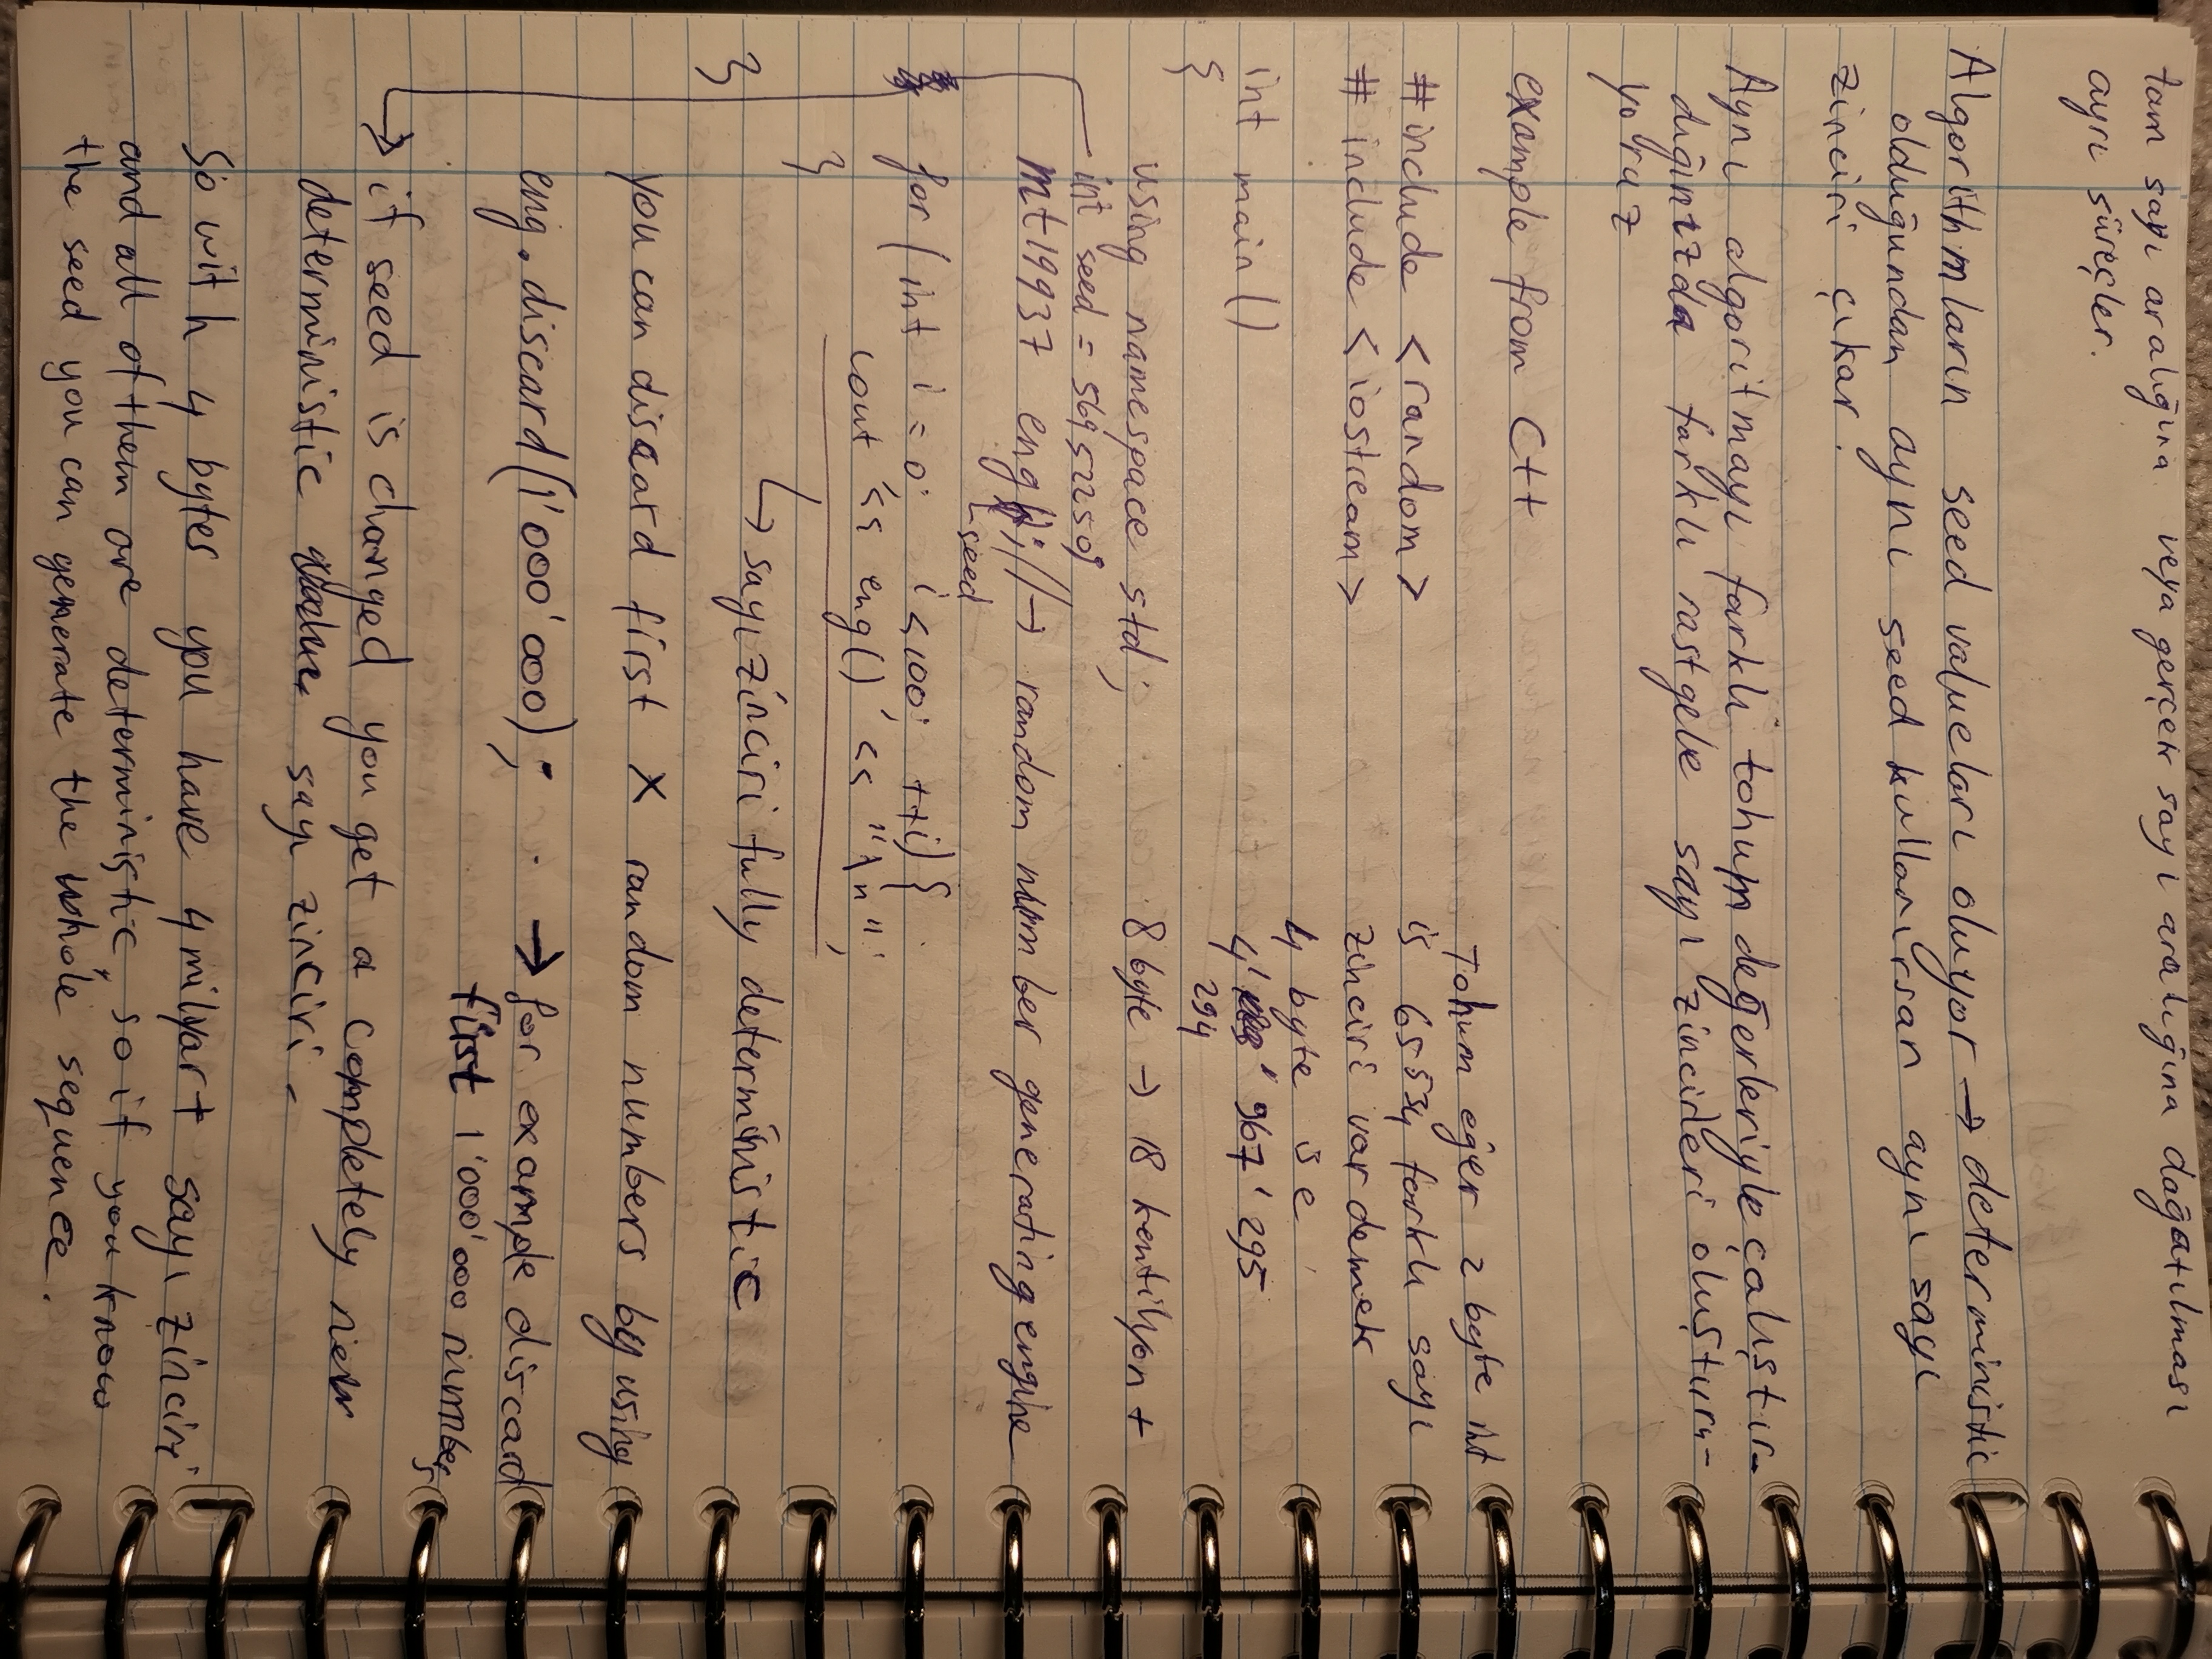 tam sayı aralığına veya gerçek sayı aralığına dağatılması
ayrı süreçler.
Algorithmların seed valueları oluyor → deterministic
olduğundan aynı seed kullanırsan aynı sayı
zinciri çıkar.
Aynı algoritmayı farklı tohum değerleriyle çalıştır-
dığınızda farklı rastgele sayı zincirleri oluşturu-
yoruz
example from C++
#include <random>
# include <iostream>
int main()
{
using namespace std;
int seed = 569522509;
mt19937 eng();//→ random number generating engine
seed
for (int i = 0; i<100; ++i) {
cout << eng() << "\n";
}
→ sayı zinciri fully deterministic
}
Tohum eğer 2 byte int
is 65534 farklı sayı
zinciri var demek
4 byte ise
4' ' 967' 295
294
8 byte → 18 kentilyon +
you can discard first X random numbers by using
eng.discard(1'000'000); → for example discard
first 1'000'000 numbers
→ if seed is changed you get a completely new
deterministic sayı zinciri.
So with 4 bytes you have 4 milyar+ sayı zinciri
and all of them are deterministic, so if you know
the seed you can generate the whole sequence.